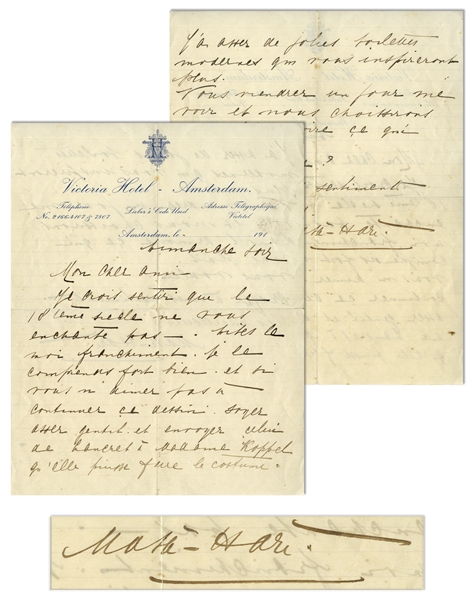 Victoria Hotel - Amsterdam.
Téléphone
No. 2166.2107 & 2107
Lieber's Code Used
Adresse Télégraphique
Victotel
Amsterdam, le 191
Dimanche Soir
Mon Cher Ami
Je crois sentir que le
18ième siècle ne vous
enchante pas - dites le
moi franchement. Je le
comprends fort bien. et si
vous n'aimer pas à
continuer ce dessin. soyer
asser gentil et envoyer celui
de Lancret à Madame Koppel
qu'elle puisse faire le costume.
J'ai asser de jolies toilettes
modernes qui vous inspireront
plus.
Vous viendrer un jour me
voir et nous choisirons
ce que
?
sentiments
ta-Hari.
Mata-Hari.